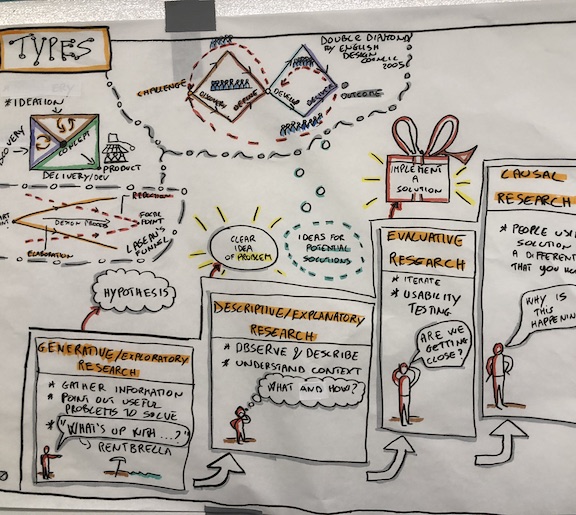 TYPES
DOUBLE DIAMOND
BY ENGLISH
DESIGN
COUNCIL
2005
CHALLENGE
DISCOVERY
DEFINE
DEVELOP
DELIVER
OUTCOME
* IDEATION
CONCEPT
PRODUCT
DELIVERY/DEV
REDUCTION
DESIGN PROCESS
FOCAL
POINT
ELABORATION
FUNNEL
HYPOTHESIS
CLEAR
IDEA
OF PROBLEM
IDEAS FOR
POTENTIAL
SOLUTIONS
IMPLEMENT
A
SOLUTION
GENERATIVE/EXPLORATORY
RESEARCH
* GATHER INFORMATION
* POINT OUT USEFUL
PROBLEMS TO SOLVE
* "WHAT'S UP WITH ...?"
RENTBRELLA
DESCRIPTIVE/EXPLANATORY
RESEARCH
* OBSERVE & DESCRIBE
* UNDERSTAND CONTEXT
WHAT AND HOW?
EVALUATIVE
RESEARCH
* ITERATE
* USABILITY
TESTING
ARE WE
GETTING
CLOSE?
CAUSAL
RESEARCH
* PEOPLE USI
SOLUTION
A DIFFERENT
THAT YOU
WHY IS
THIS
HAPPENIN